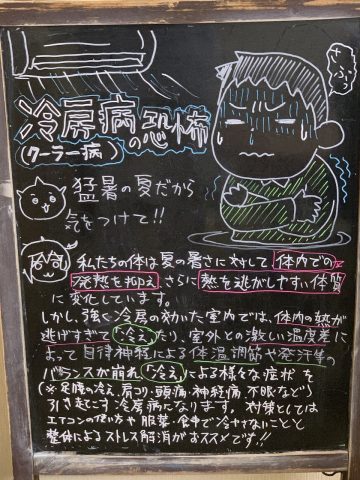 さむっ
冷房病の恐怖
(クーラー病)
猛暑の夏だから
気をつけて!!
私たちの体は夏の暑さに対して体内での
発熱を抑えさらに熱を逃がしやすい体質
に変化しています。
しかし、強く冷房の効いた室内では、体内の熱が
逃げすぎて「冷え」たり、室外との激しい温度差に
よって自律神経による体温調節や発汗等の
バランスが崩れ「冷え」による様々な症状を
(※足腰の冷え、肩コリ・頭痛・神経痛 不眠など)
引き起こす冷房病になります。対策としては
エアコンの使い方や服装・食事で冷やさないことと
整体によるストレス解消がおススメです!!